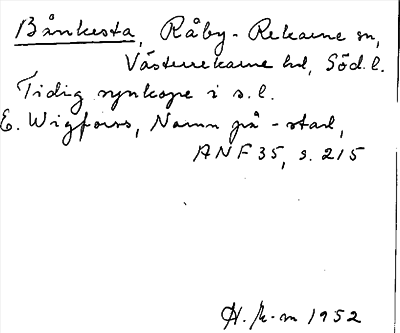 Bånkesta, Råby-Rekarne sn,
Västerrekarne hd, Söd.l.
Tidig synkope i s.l.
E. Wigforss, Namn på -stad,
ANF 35, s. 215
1952